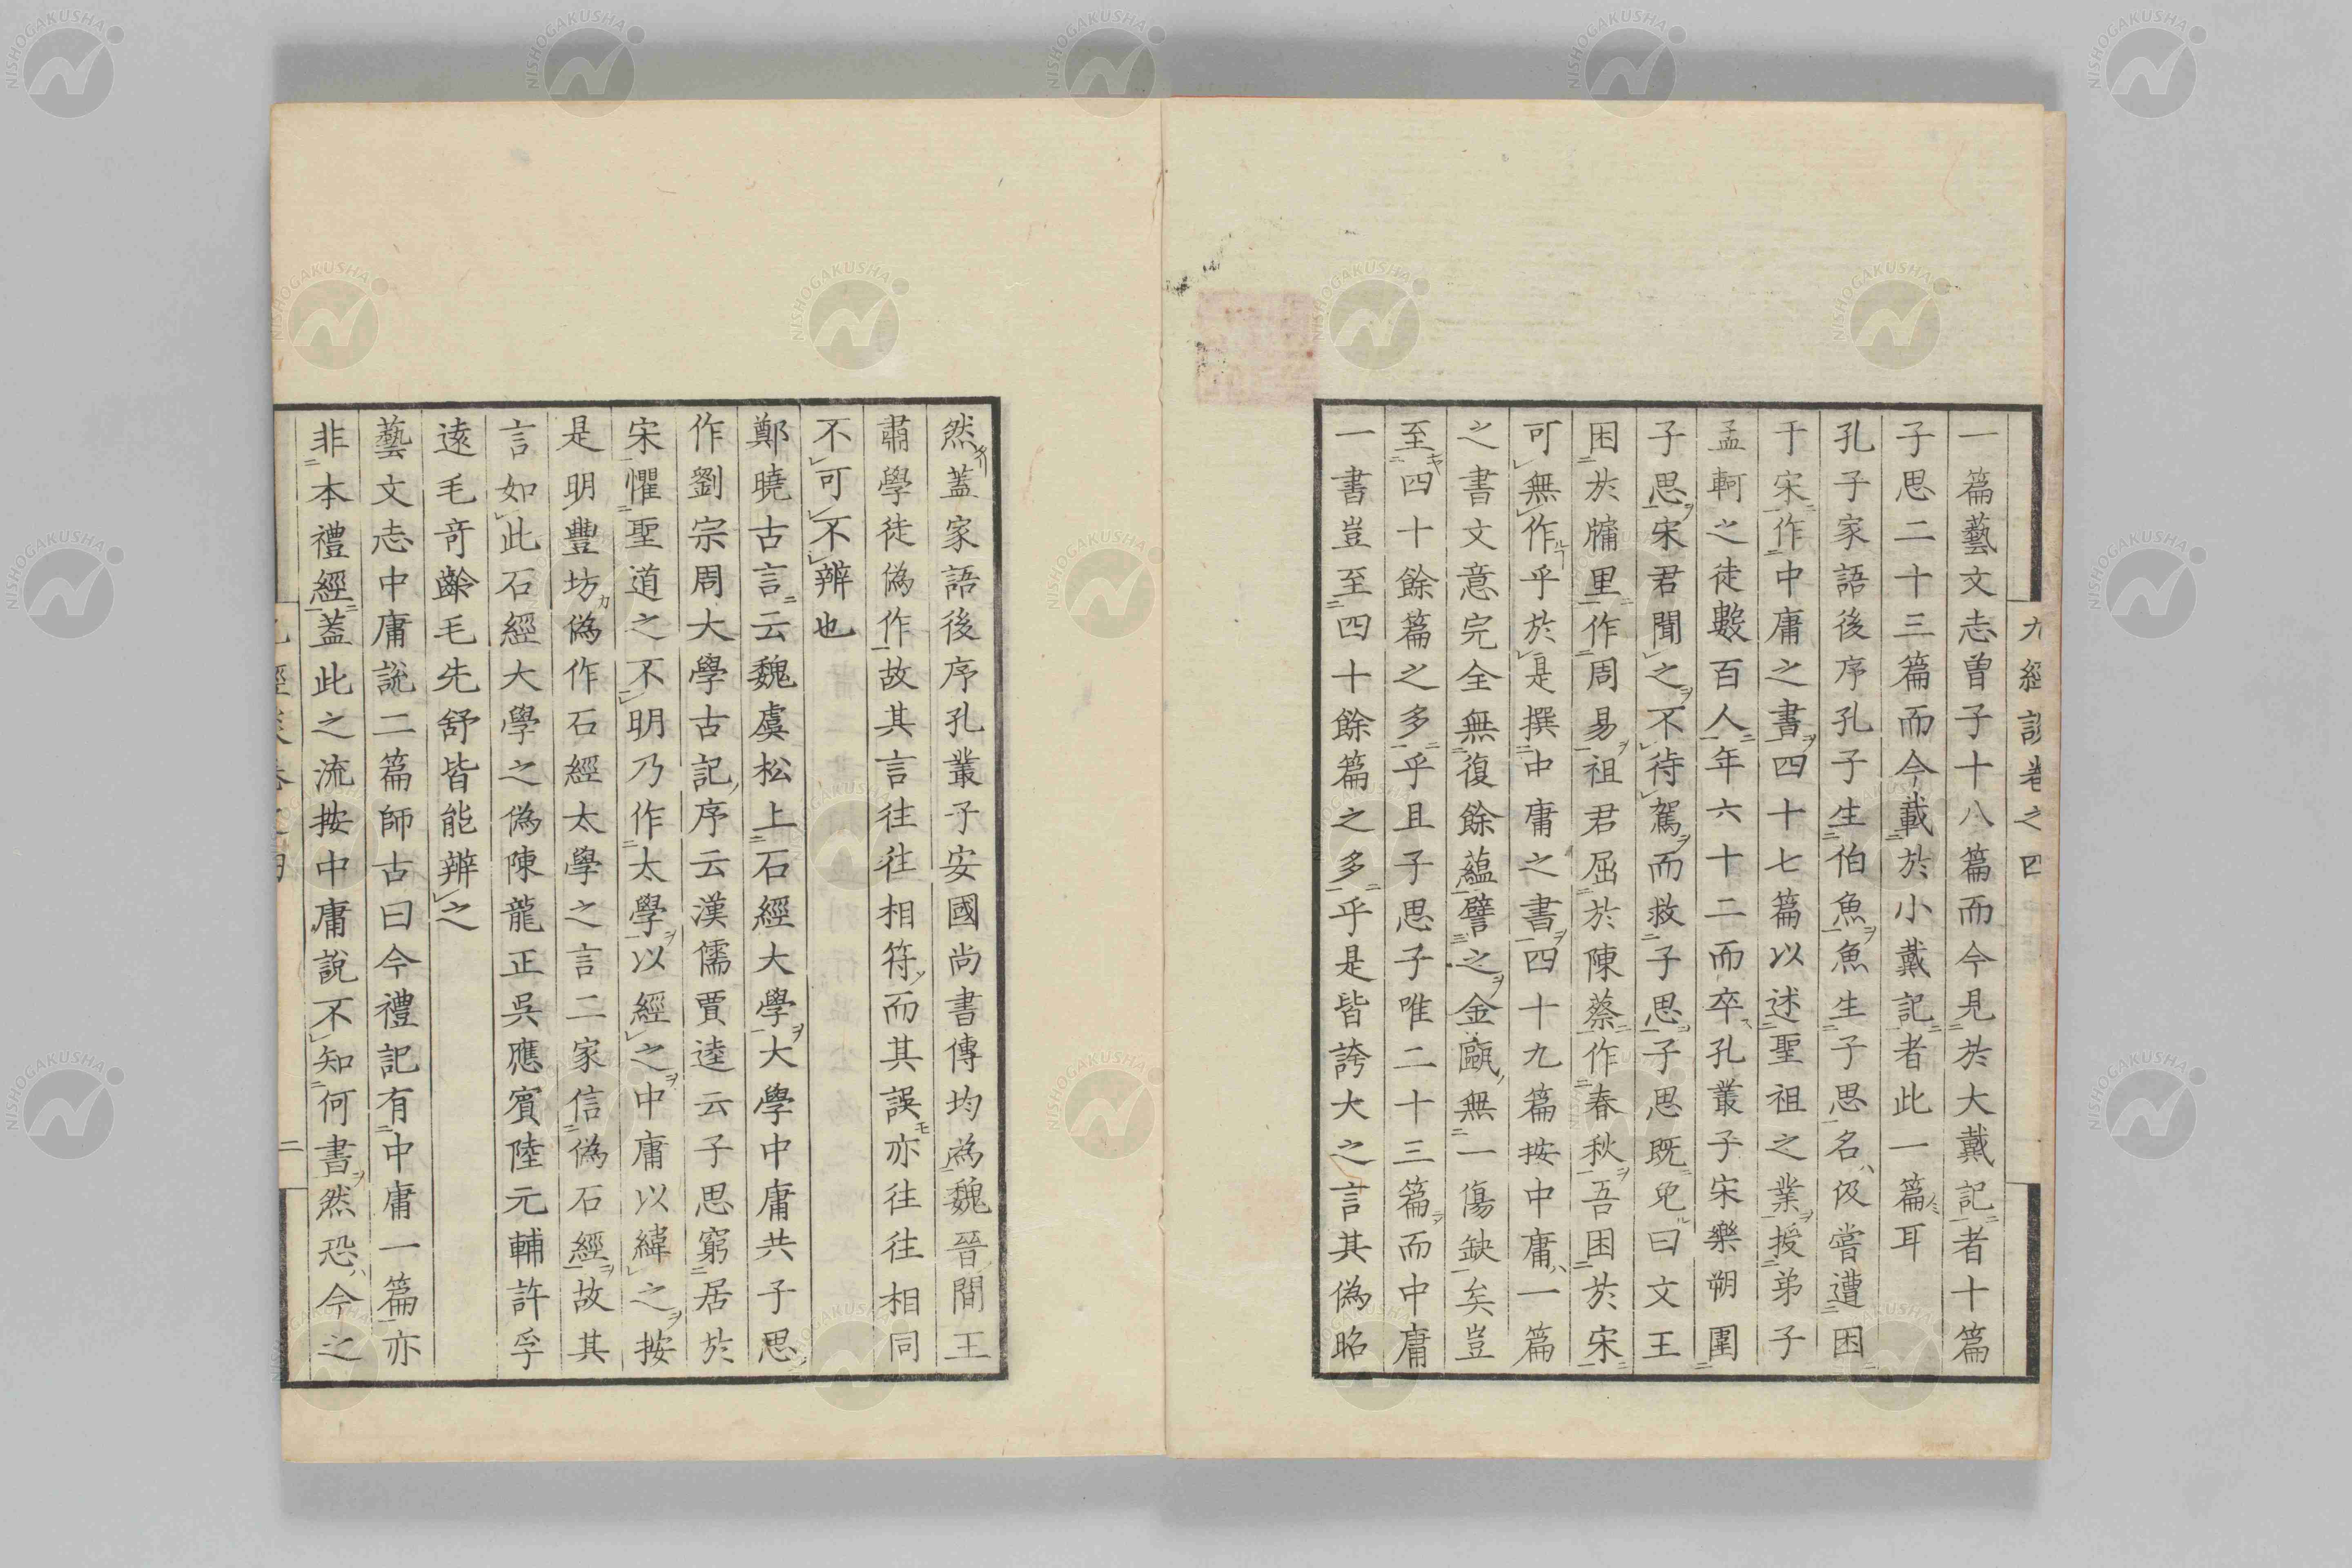 九經談卷之四
一篇藝文志曽子十八篇而今見於大戴記者十篇
子思二十三篇而今載於小戴記者此一篇耳
孔子家語後序孔子生伯魚魚生子思名伋嘗遭困
于宋作中庸之書四十七篇以述聖祖之業授弟子
孟軻之徒數百人年六十二而卒孔叢子宋樂朔圍
子思宋君聞之不待駕而救子思子思既免曰文王
困於牖里作周易祖君屈於陳蔡作春秋吾困於宋
可無作乎於是撰中庸之書四十九篇按中庸一篇
之書文意完全無復餘蘊譬之金甌無一傷缺矣豈
至四十餘篇之多乎且子思子唯二十三篇而中庸
一書豈至四十餘篇之多乎是皆誇大之言其偽昭
然蓋家語後序孔叢子安國尚書傳均為魏晉間王
肅學徒偽作故其言往往相符而其誤亦往往相同
不可不辨也
鄭曉古言云魏虞松上石經大學大學中庸共子思
作劉宗周大學古記序云漢儒賈逵云子思窮居於
宋懼聖道之不明乃作太學以經之中庸以緯之按
是明豐坊偽作石經太學之言二家信偽石經故其
言如此石經大學之偽陳龍正吳應賓陸元輔許孚
遠毛奇齡毛先舒皆能辨之
藝文志中庸說二篇師古曰今禮記有中庸一篇亦
非本禮經蓋此之流按中庸說不知何書然恐今之
二
NISHOGAKUSHA